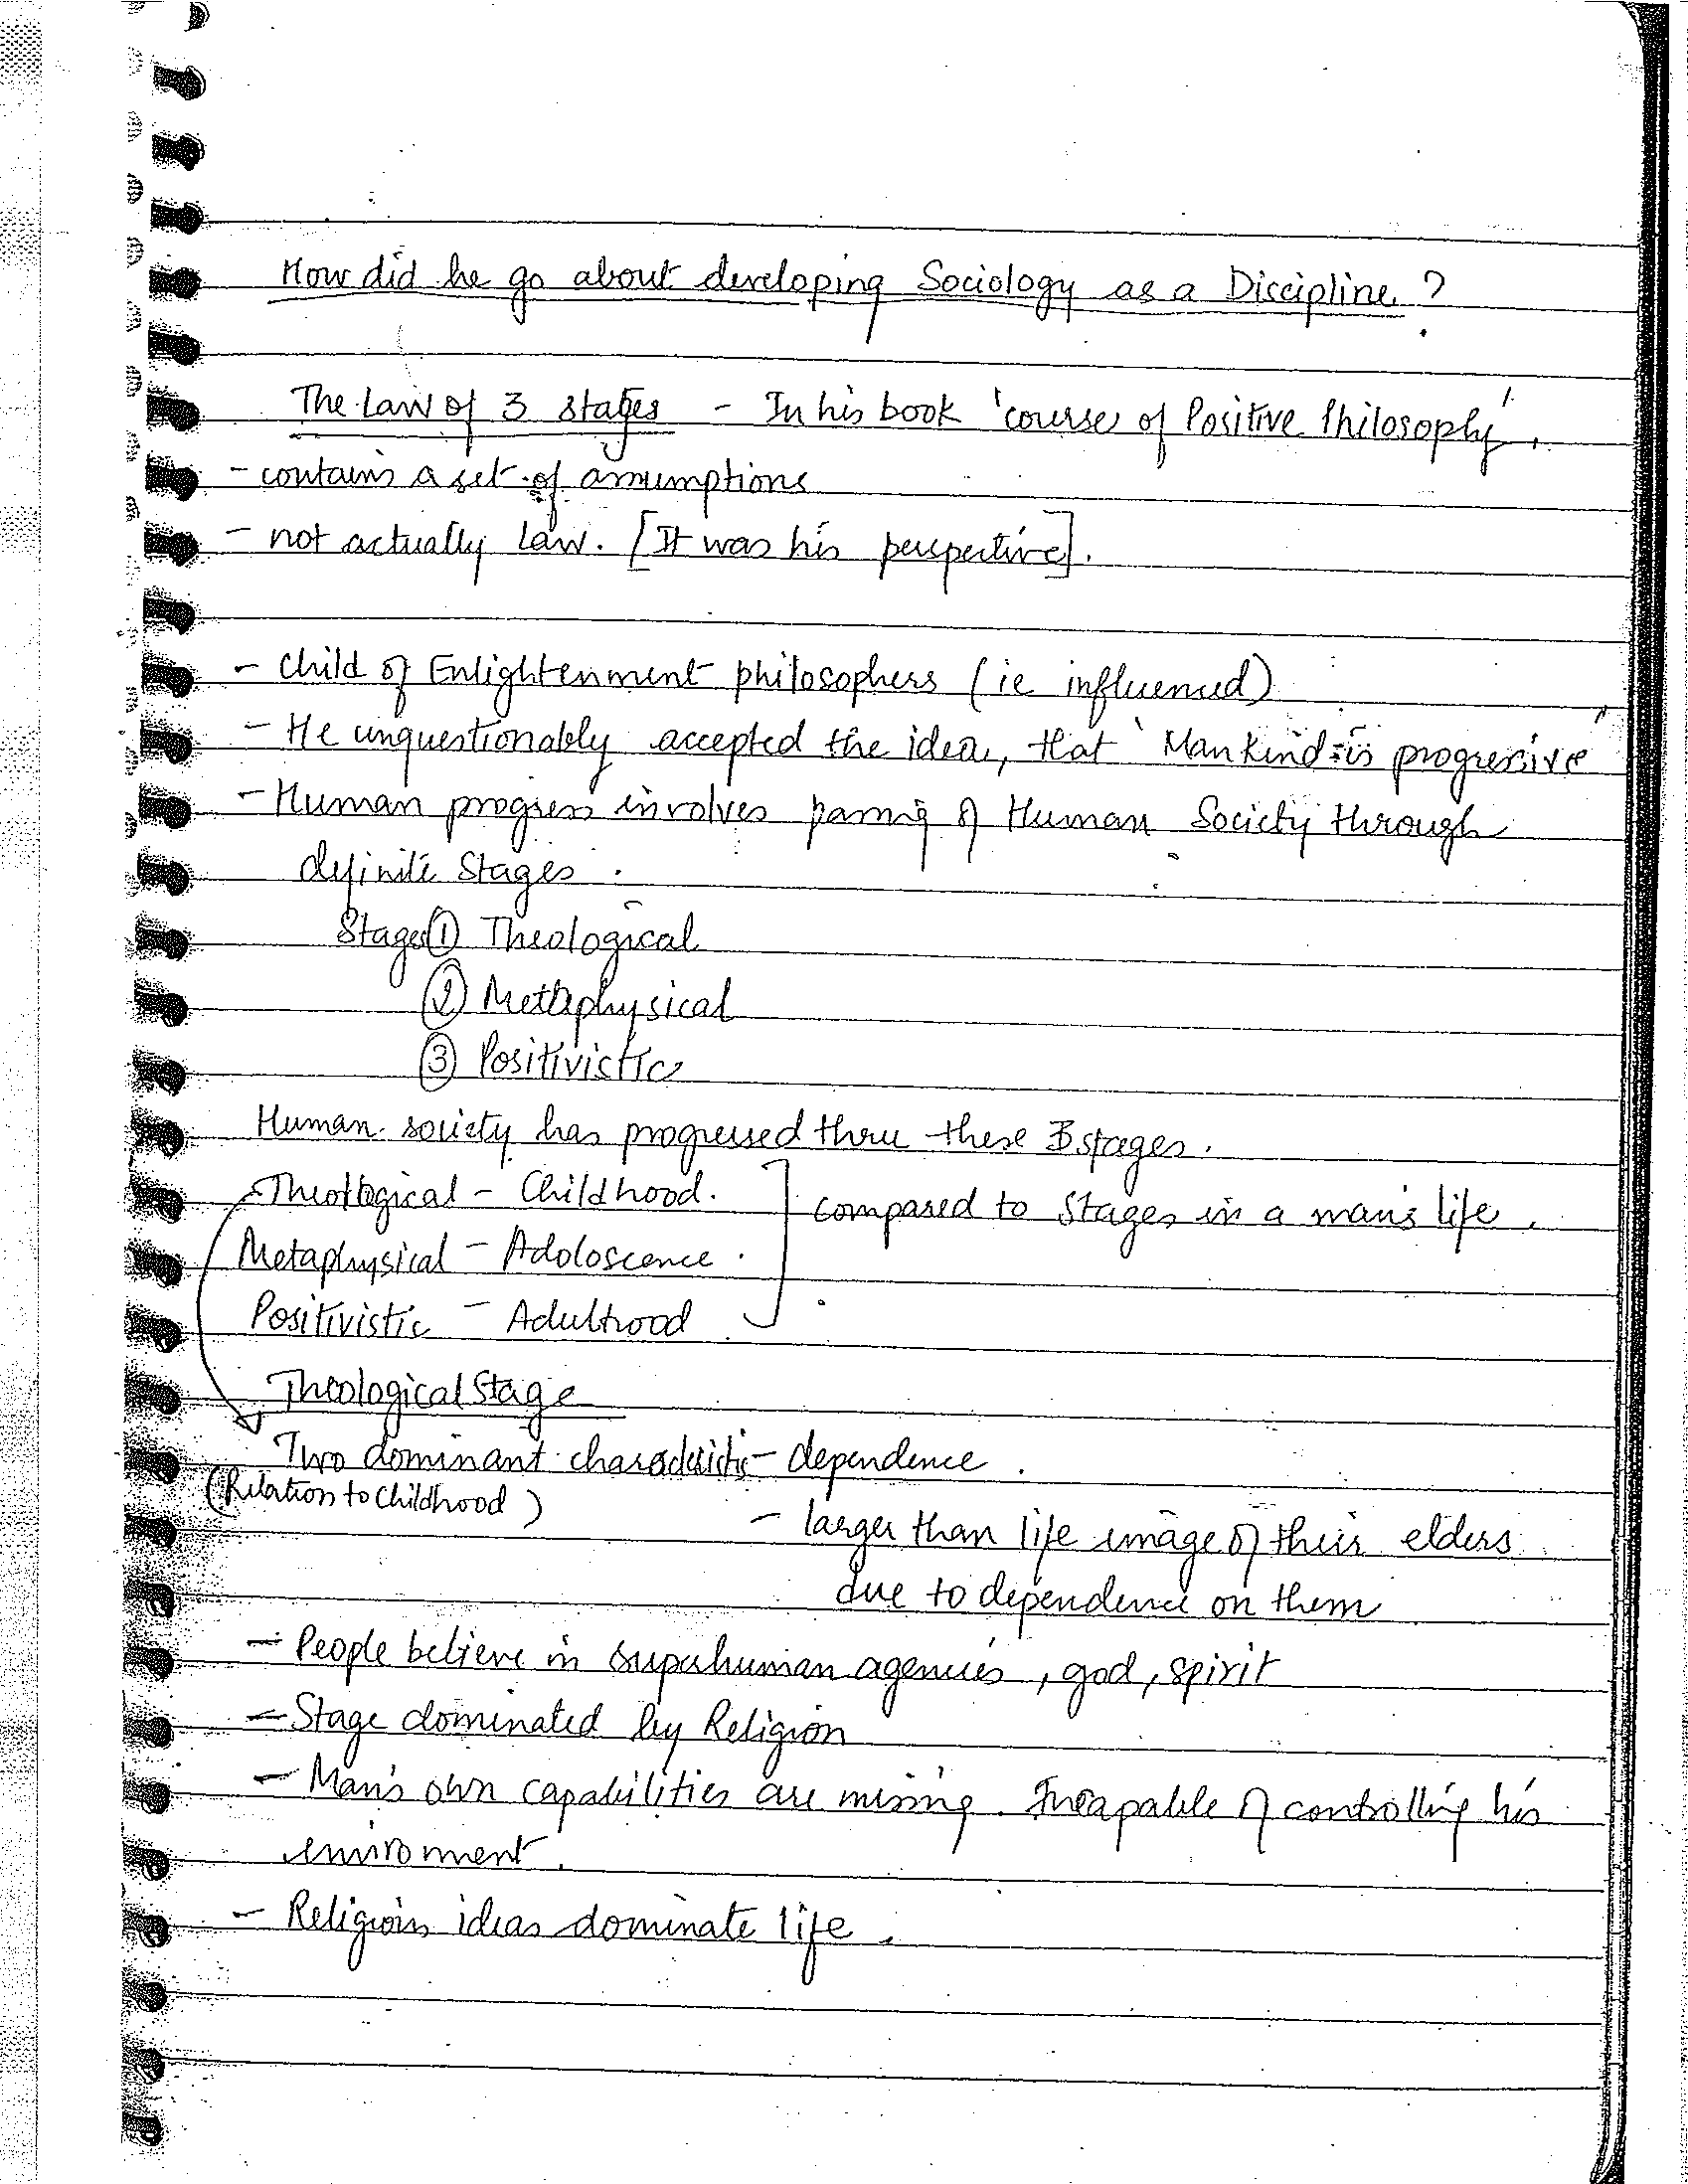 How did he go about developing Sociology as a Discipline ?
The Law of 3 stages - In his book 'course of Positive Philosophy'.
- contains a set of assumptions
- not actually law. [It was his perspective].
- Child of Enlightenment philosophers (ie influenced)
- He unquestionably accepted the idea, that 'Mankind is progressive'
- Human progress involves passing of Human Society through
definite stages.
Stages ① Theological
② Metaphysical
③ Positivistic
Human society has progressed thru these 3 stages.
Theological - Childhood.
compared to stages in a man's life.
Metaphysical - Adoloscence.
Positivistic - Adulthood
Theological Stage
Two dominant characteristic - dependence.
(Relation to Childhood)
- larger than life image of their elders
due to dependence on them
- People believe in superhuman agencies, god, spirit
- Stage dominated by Religion
- Man's own capabilities are missing. Incapable of controlling his
enviroment.
- Religious ideas dominate life.